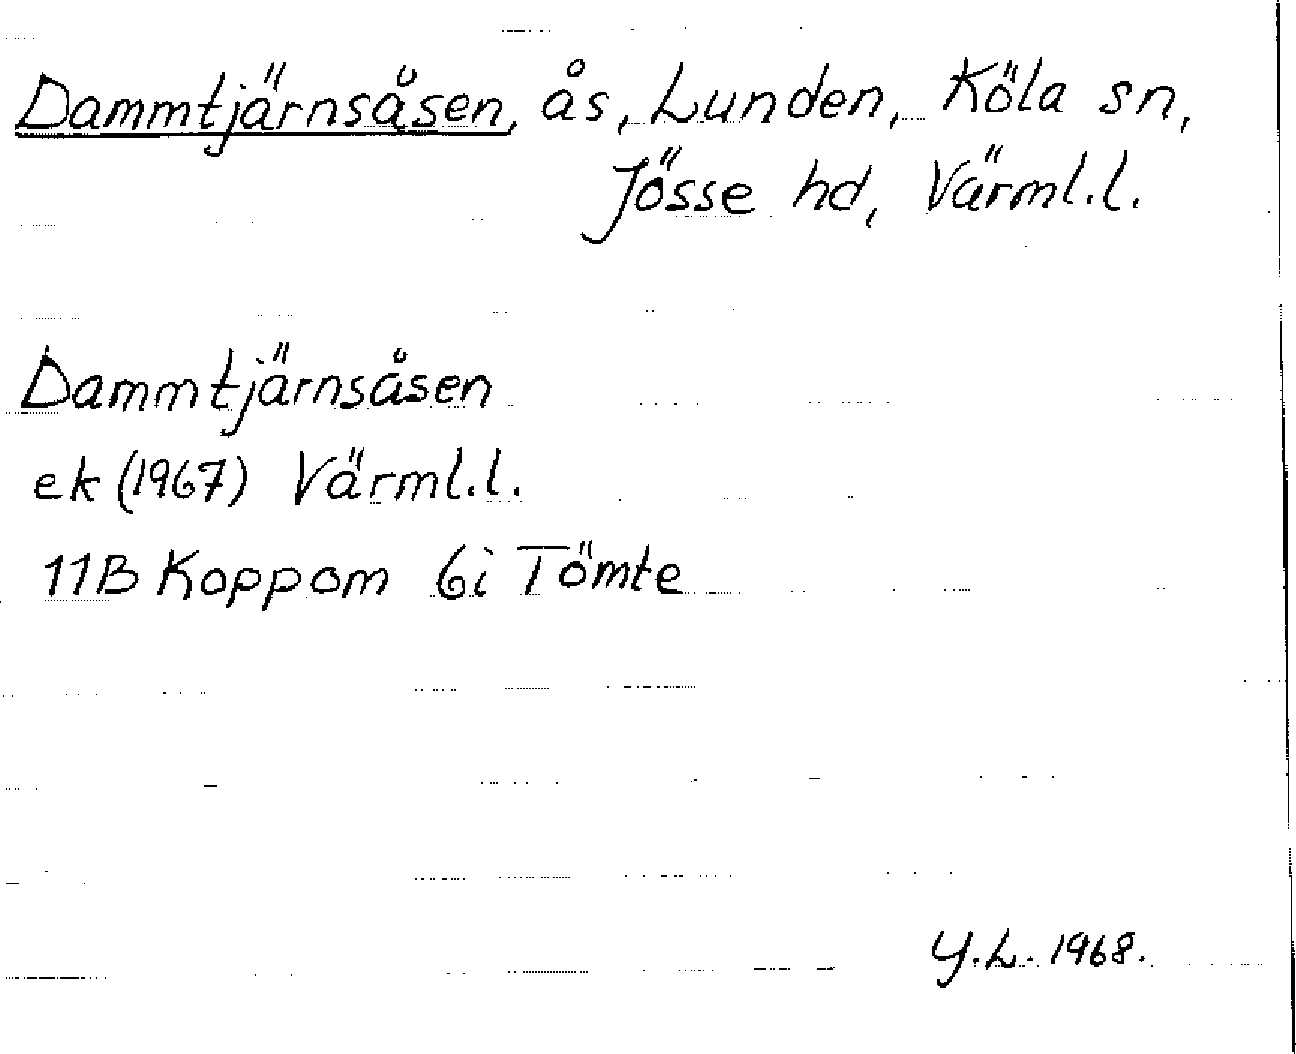 Dammtjärnsåsen, ås, Lunden, Köla sn,
Jösse hd, Värml.l.
Dammtjärnsåsen
ek (1967) Värml.l.
11B Koppom 6i Tömte
Y.L. 1968.